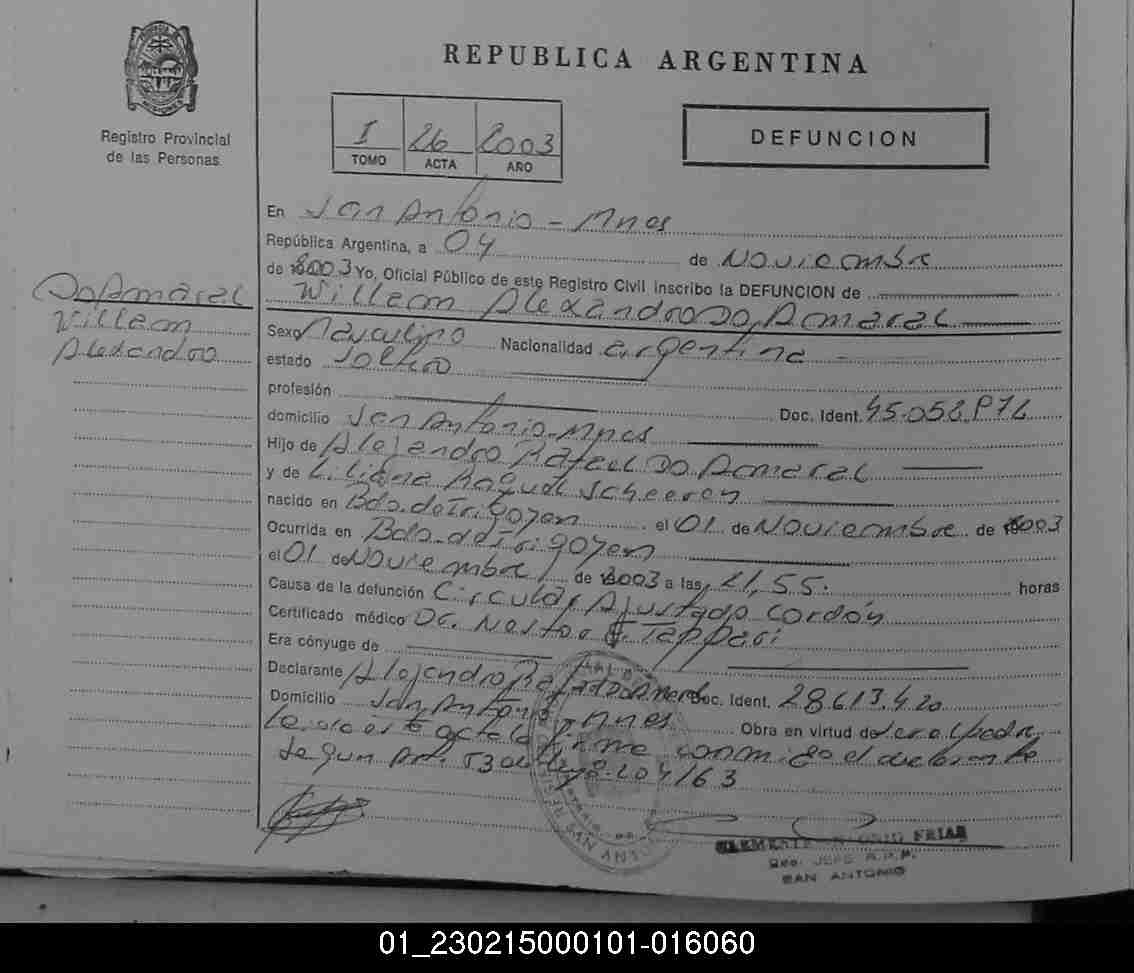 REPUBLICA ARGENTINA
Registro Provincial
de las Personas
I 26 2003
TOMO ACTA AÑO
DEFUNCION
En San Antonio - Mnes
República Argentina, a 04 de Noviembre
de 2003 Yo, Oficial Público de este Registro Civil inscribo la DEFUNCION de
Willean Alexandro Do Amaral
Do Amaral
Willean
Alexandro
Sexo Masculino Nacionalidad argentina
estado Soltero
profesión Doc. Ident.
domicilio San Antonio - Mnes
Hijo de Alejandro Rafael Do Amaral
y de Liliana Raquel Scheeren
nacido en Bdo. de Irigoyen el 01 de Noviembre de 2003
Ocurrida en Bdo. de Irigoyen
el 01 de Noviembre de 2003 a las 21,55. horas
Causa de la defunción Circular Ajustado Cordón
Certificado médico Dr. Nestor Tappari
Era cónyuge de
Declarante Alejandro Rafael Do Amaral Doc. Ident. 28.613.420
Domicilio San Antonio - Mnes Obra en virtud de ser el padre
Leida esta acta la firma conmigo el declarante
Segun Art. Ley 8.204/63
FRIAS
JEFE R.P.P.
SAN ANTONIO
01_230215000101-016060